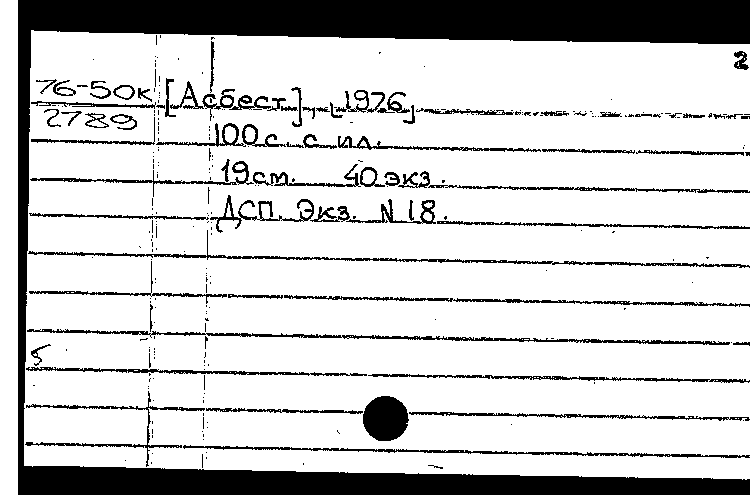 2
76-50к [Асбест], [1976]
2789
100 с. с ил.
19 см. 40 экз.
ДСП. Экз. N 18.
5